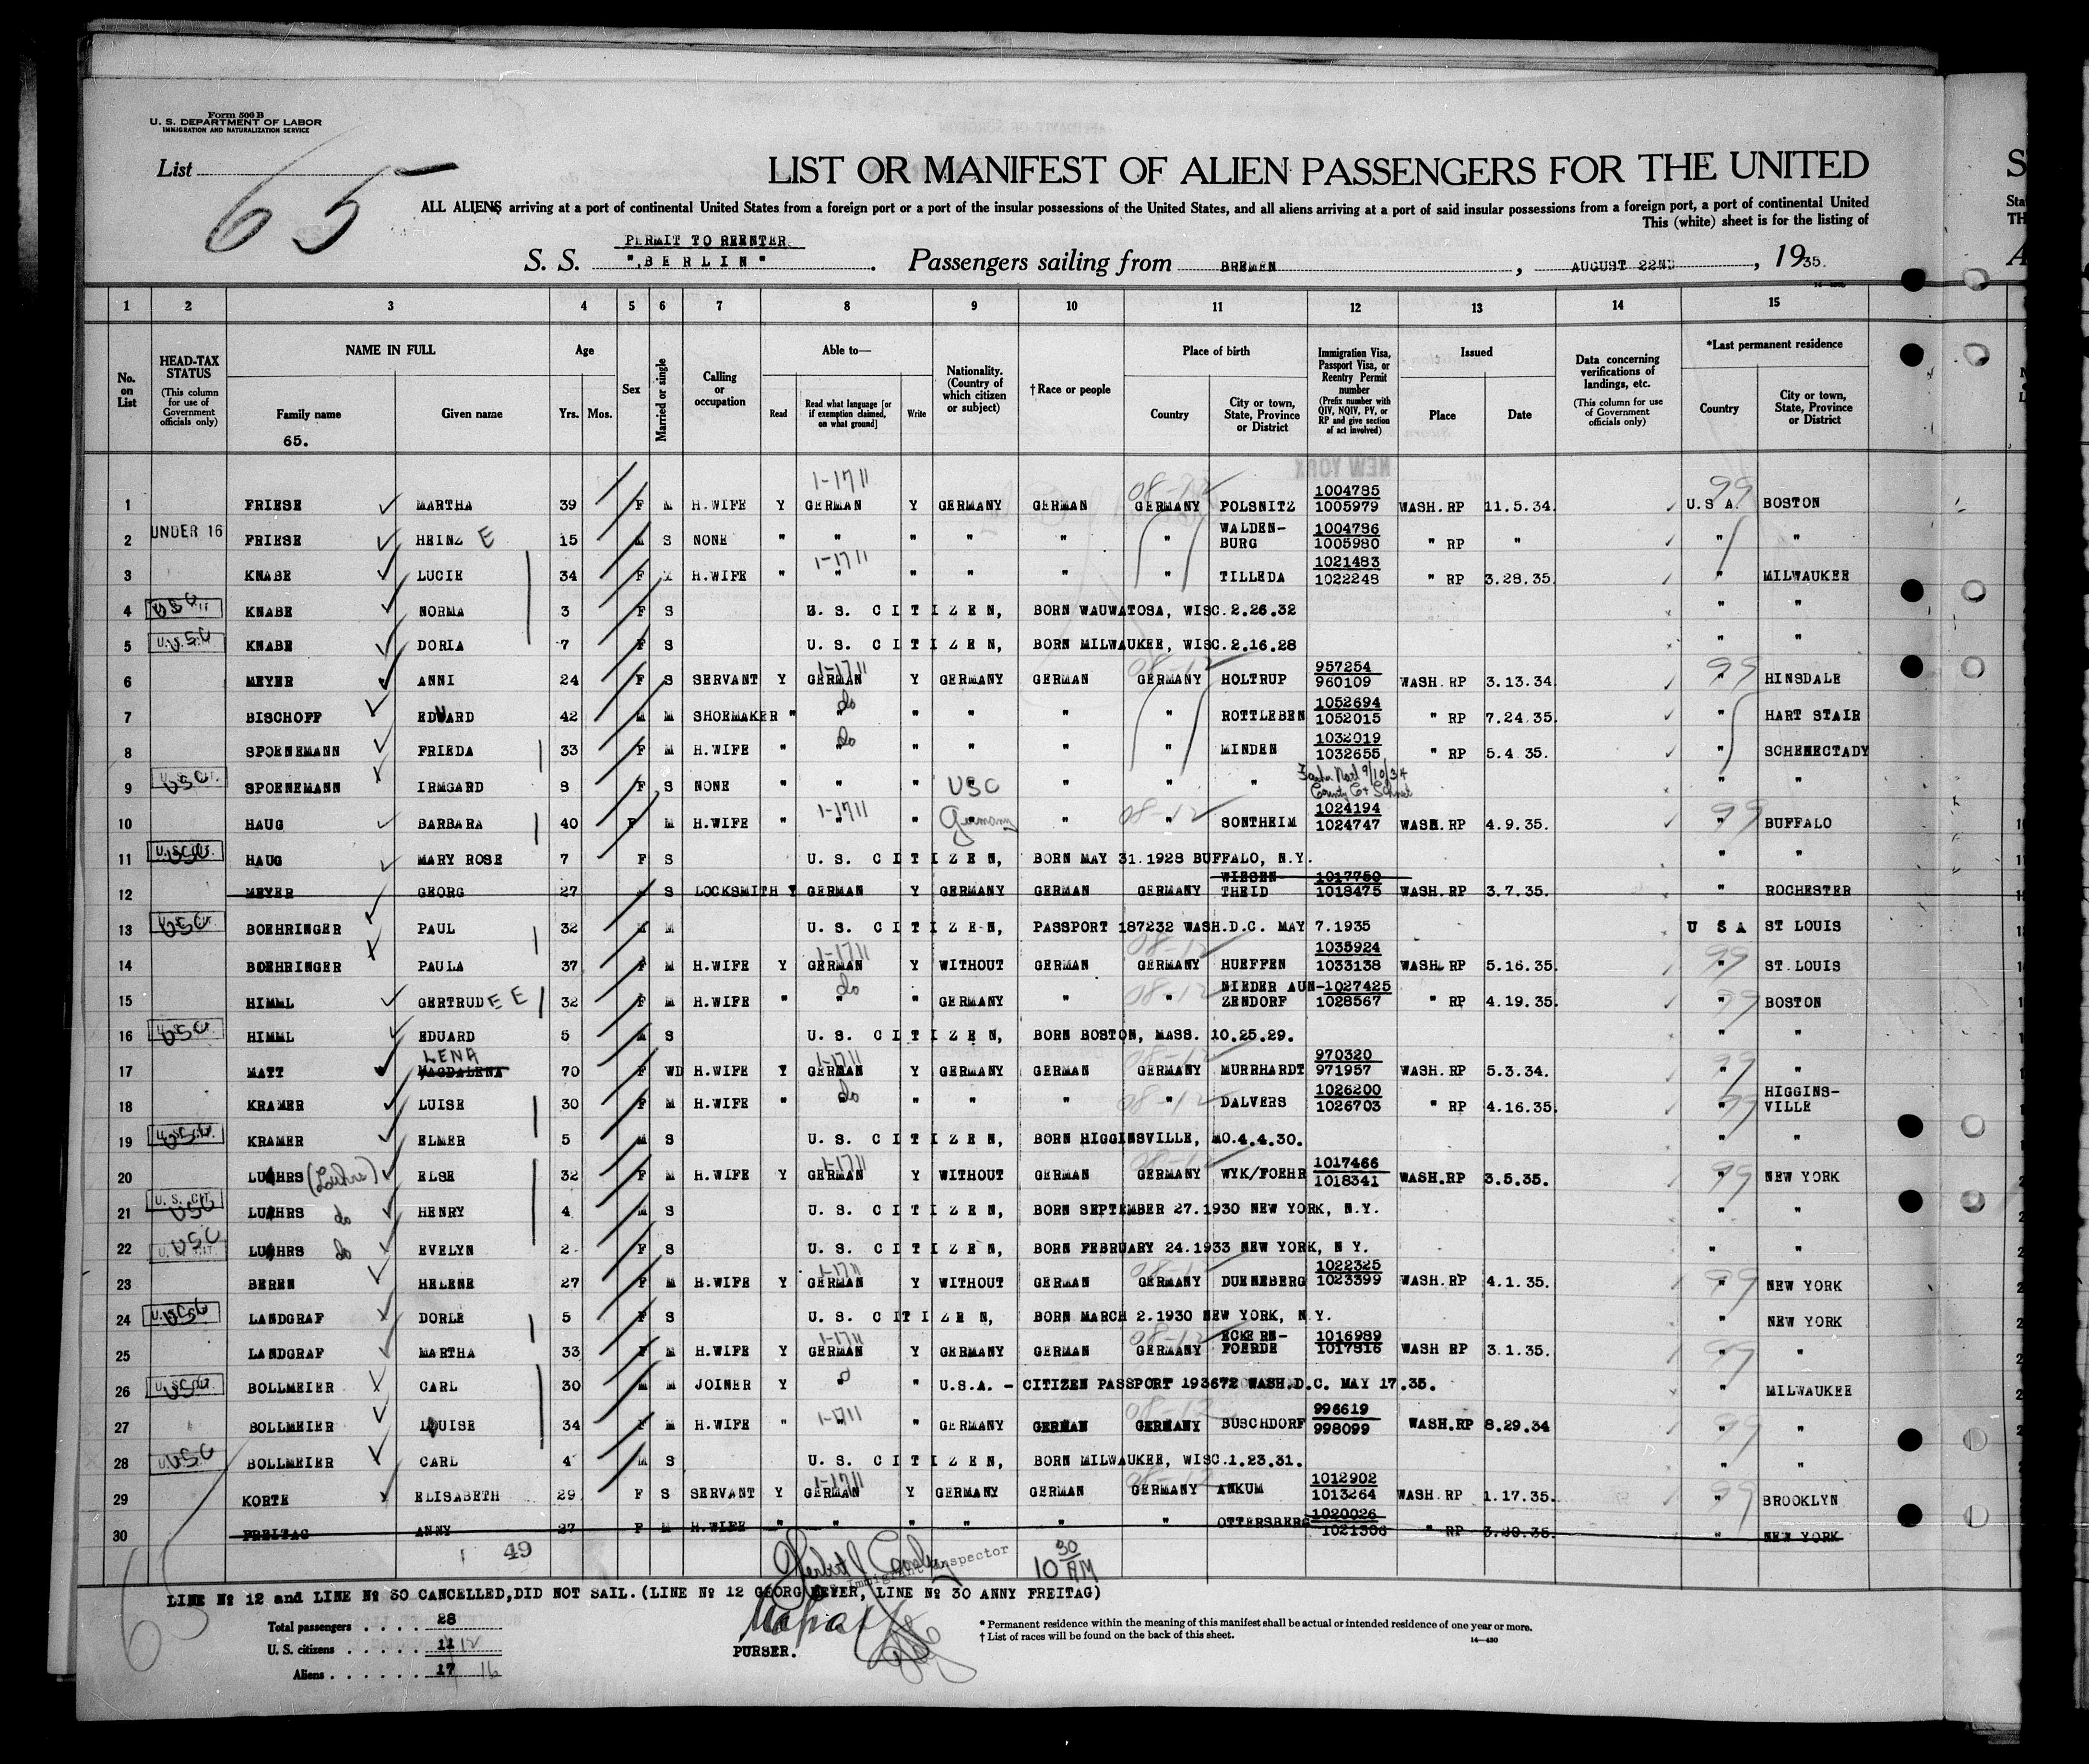 Form 500 B
U. S. DEPARTMENT OF LABOR
IMMIGRATION AND NATURALIZATION SERVICE
List 65
LIST OR MANIFEST OF ALIEN PASSENGERS FOR THE UNITED
ALL ALIENS arriving at a port of continental United States from a foreign port or a port of the insular possessions of the United States, and all aliens arriving at a port of said insular possessions from a foreign port, a port of continental United
This (white) sheet is for the listing of
PERMIT TO REENTER
S. S. "BERLIN" . Passengers sailing from BREMEN , AUGUST 22ND , 1935.
1 2 3 4 5 6 7 8 9 10 11 12 13 14 15
No. on List
HEAD-TAX STATUS (This column for use of Government officials only)
NAME IN FULL Family name Given name
65.
Age Yrs. Mos.
Sex
Married or single
Calling or occupation
Able to— Read Read what language [or if exemption claimed, on what ground] Write
Nationality. (Country of which citizen or subject)
† Race or people
Place of birth Country City or town, State, Province or District
Immigration Visa, Passport Visa, or Reentry Permit number (Prefix number with QIV, NQIV, PV, or RP and give section of act involved)
Issued Place Date
Data concerning verifications of landings, etc. (This column for use of Government officials only)
*Last permanent residence Country City or town, State, Province or District
1 FRIESE MARTHA 39 F M H.WIFE Y GERMAN 1-1711 Y GERMANY GERMAN GERMANY 08-12 POLSNITZ 1004785 1005979 WASH. RP 11.5.34. U.S A. 99 BOSTON
2 UNDER 16 FRIESE HEINZ E 15 M S NONE " " " " " " WALDEN-BURG 1004786 1005980 " RP " " "
3 KNABE LUCIE 34 F M H.WIFE " 1-1711 " " " " " TILLEDA 1021483 1022248 " RP 3.28.35. " MILWAUKEE
4 USC KNABE NORMA 3 F S U. S. CITIZEN, BORN WAUWATOSA, WISC.2.26.32 " "
5 USC KNABE DORIA 7 F S U. S. CITIZEN, BORN MILWAUKEE, WISC.2.16.28 " "
6 MEYER ANNI 24 F S SERVANT Y GERMAN 1-1711 Y GERMANY GERMAN GERMANY 08-12 HOLTRUP 957254 960109 WASH. RP 3.13.34 " 99 HINSDALE
7 BISCHOFF EDUARD 42 M M SHOEMAKER " " do " " " " ROTTLEBEN 1052694 1052015 " RP 7.24.35. " HART STAIR
8 SPOENEMANN FRIEDA 33 F M H.WIFE " " do " " " " MINDEN 1032019 1032655 " RP 5.4 35. " SCHENECTADY
9 USC SPOENEMANN IRMGARD 8 F S NONE " " " USC " " " " "
10 HAUG BARBARA 40 F M H.WIFE " 1-1711 " Germany " 08-12 SONTHEIM 1024194 1024747 WASH. RP 4.9.35. " 99 BUFFALO
11 USC HAUG MARY ROSE 7 F S U. S. CITIZEN, BORN MAY 31.1928 BUFFALO, N.Y. " "
12 MEYER GEORG 27 M S LOCKSMITH Y GERMAN Y GERMANY GERMAN GERMANY WIESEN THEID 1017750 1018475 WASH. RP 3.7.35. " ROCHESTER
13 USC BOEHRINGER PAUL 32 M M U. S. CITIZEN, PASSPORT 187232 WASH.D.C. MAY 7.1935 U S A ST LOUIS
14 BOEHRINGER PAULA 37 F M H.WIFE Y GERMAN 1-1711 Y WITHOUT GERMAN GERMANY 08-12 HUEFFEN 1035924 1033138 WASH. RP 5.16.35. " 99 ST.LOUIS
15 HIMML GERTRUDEE E 32 F M H.WIFE " " do " GERMANY " " 08-12 NIEDER AUN-ZENDORF 1027425 1028567 " RP 4.19.35. " 99 BOSTON
16 USC HIMML EDUARD 5 M S U. S. CITIZEN, BORN BOSTON, MASS. 10.25.29. " "
17 MATT LENA MAGDALENA 70 F WD H.WIFE Y GERMAN 1-1711 Y GERMANY GERMAN GERMANY 08-12 MURRHARDT 970320 971957 WASH. RP 5.3.34. " 99 "
18 KRAMER LUISE 30 F M H.WIFE " " do " " " " 08-12 DALVERS 1026200 1026703 " RP 4.16.35. " 99 HIGGINS-VILLE
19 USC KRAMER ELMER 5 M S U. S. CITIZEN, BORN HIGGINSVILLE, MO.4.4.30. " "
20 LUEHRS (Luhrs) ELSE 32 F M H.WIFE Y GERMAN 1-1711 Y WITHOUT GERMAN GERMANY 08-12 WYK/FOEHR 1017466 1018341 WASH.RP 3.5.35. " 99 NEW YORK
21 U. S. CIT. USC LUEHRS do HENRY 4 M S U. S. CITIZEN, BORN SEPTEMBER 27.1930 NEW YORK, N.Y. " "
22 USC LUEHRS do EVELYN 2 F S U. S. CITIZEN, BORN FEBRUARY 24.1933 NEW YORK, N Y. " "
23 BEREN HELENE 27 F M H.WIFE Y GERMAN 1-1711 Y WITHOUT GERMAN GERMANY 08-12 DUENEBERG 1022325 1023399 WASH. RP 4.1.35. " 99 NEW YORK
24 USC LANDGRAF DORLE 5 F S U. S. CITIZEN, BORN MARCH 2.1930 NEW YORK, N Y. NEW YORK
25 LANDGRAF MARTHA 33 F M H.WIFE Y GERMAN 1-1711 Y GERMANY GERMAN GERMANY 08-12 ECKERN-FOERDE 1016989 1017816 WASH RP 3.1.35. " 99 "
26 USC BOLLMEIER CARL 30 M M JOINER Y " " U.S.A. - CITIZEN PASSPORT 193672 WASH.D.C. MAY 17.35. " MILWAUKEE
27 BOLLMEIER LOUISE 34 F M H.WIFE " 1-1711 " GERMANY GERMAN GERMANY 08-12 BUSCHDORF 996619 998099 WASH.RP 8.29.34 " 99 "
28 USC BOLLMEIER CARL 4 M S U. S. CITIZEN, BORN MILWAUKEE, WISC.1.23.31. " "
29 KORTE ELISABETH 29 F S SERVANT Y GERMAN 1-1711 Y GERMANY GERMAN GERMANY 08-12 ANKUM 1012902 1013264 WASH. RP 1.17.35. " 99 BROOKLYN
30 FREITAG ANNY 27 F M H.WIFE " " " " " " OTTERSBERG 1020026 1021306 " RP 3.20.35. " NEW YORK
49
Immigrant Inspector
10 30 AM
LINE № 12 and LINE № 30 CANCELLED, DID NOT SAIL. (LINE № 12 GEORG MEYER, LINE № 30 ANNY FREITAG)
Total passengers . . . . 28
U. S. citizens . . . . . 11 12
Aliens . . . . . . 17 16
PURSER.
* Permanent residence within the meaning of this manifest shall be actual or intended residence of one year or more.
† List of races will be found on the back of this sheet.
14—430
65